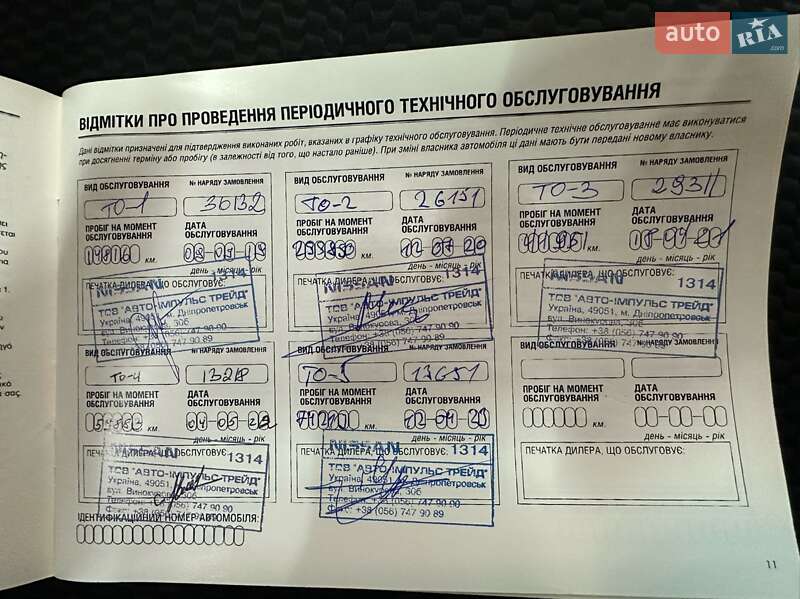 auto RIA.com
ВІДМІТКИ ПРО ПРОВЕДЕННЯ ПЕРІОДИЧНОГО ТЕХНІЧНОГО ОБСЛУГОВУВАННЯ
Дані відмітки призначені для підтвердження виконаних робіт, вказаних в графіку технічного обслуговування. Періодичне технічне обслуговування має виконуватися
при досягненні терміну або пробігу (в залежності від того, що настало раніше). При зміні власника автомобіля ці дані мають бути передані новому власнику.
ВИД ОБСЛУГОВУВАННЯ № НАРЯДУ ЗАМОВЛЕННЯ
ТО-1 36132
ПРОБІГ НА МОМЕНТ ОБСЛУГОВУВАННЯ ДАТА ОБСЛУГОВУВАННЯ
км.
день - місяць - рік
ПЕЧАТКА ДИЛЕРА, ЩО ОБСЛУГОВУЄ:
NISSAN 1314
ТСВ "АВТО-ІМПУЛЬС ТРЕЙД"
Україна, 49051, м. Дніпропетровськ
вул. Винокурова, 30б
Телефон: +38 (056) 747 90 90
Факс: +38 (056) 747 90 89
ВИД ОБСЛУГОВУВАННЯ № НАРЯДУ ЗАМОВЛЕННЯ
ТО-2 26151
ПРОБІГ НА МОМЕНТ ОБСЛУГОВУВАННЯ ДАТА ОБСЛУГОВУВАННЯ
км. 12-07-20
день - місяць - рік
ПЕЧАТКА ДИЛЕРА, ЩО ОБСЛУГОВУЄ:
NISSAN 1314
ТСВ "АВТО-ІМПУЛЬС ТРЕЙД"
Україна, 49051, м. Дніпропетровськ
вул. Винокурова, 30б
Телефон: +38 (056) 747 90 90
Факс: +38 (056) 747 90 89
ВИД ОБСЛУГОВУВАННЯ № НАРЯДУ ЗАМОВЛЕННЯ
ТО-3 29311
ПРОБІГ НА МОМЕНТ ОБСЛУГОВУВАННЯ ДАТА ОБСЛУГОВУВАННЯ
км.
день - місяць - рік
ПЕЧАТКА ДИЛЕРА, ЩО ОБСЛУГОВУЄ:
NISSAN 1314
ТСВ "АВТО-ІМПУЛЬС ТРЕЙД"
Україна, 49051, м. Дніпропетровськ
вул. Винокурова, 30б
Телефон: +38 (056) 747 90 90
Факс: +38 (056) 747 90 89
ВИД ОБСЛУГОВУВАННЯ № НАРЯДУ ЗАМОВЛЕННЯ
ТО-4
ПРОБІГ НА МОМЕНТ ОБСЛУГОВУВАННЯ ДАТА ОБСЛУГОВУВАННЯ
км.
день - місяць - рік
ПЕЧАТКА ДИЛЕРА, ЩО ОБСЛУГОВУЄ:
NISSAN 1314
ТСВ "АВТО-ІМПУЛЬС ТРЕЙД"
Україна, 49051, м. Дніпропетровськ
вул. Винокурова, 30б
Телефон: +38 (056) 747 90 90
Факс: +38 (056) 747 90 89
ВИД ОБСЛУГОВУВАННЯ № НАРЯДУ ЗАМОВЛЕННЯ
ТО-5 13651
ПРОБІГ НА МОМЕНТ ОБСЛУГОВУВАННЯ ДАТА ОБСЛУГОВУВАННЯ
км.
день - місяць - рік
ПЕЧАТКА ДИЛЕРА, ЩО ОБСЛУГОВУЄ:
NISSAN 1314
ТСВ "АВТО-ІМПУЛЬС ТРЕЙД"
Україна, 49051, м. Дніпропетровськ
вул. Винокурова, 30б
Телефон: +38 (056) 747 90 90
Факс: +38 (056) 747 90 89
ВИД ОБСЛУГОВУВАННЯ № НАРЯДУ ЗАМОВЛЕННЯ
ПРОБІГ НА МОМЕНТ ОБСЛУГОВУВАННЯ ДАТА ОБСЛУГОВУВАННЯ
км.
день - місяць - рік
ПЕЧАТКА ДИЛЕРА, ЩО ОБСЛУГОВУЄ:
ІДЕНТИФІКАЦІЙНИЙ НОМЕР АВТОМОБІЛЯ:
11